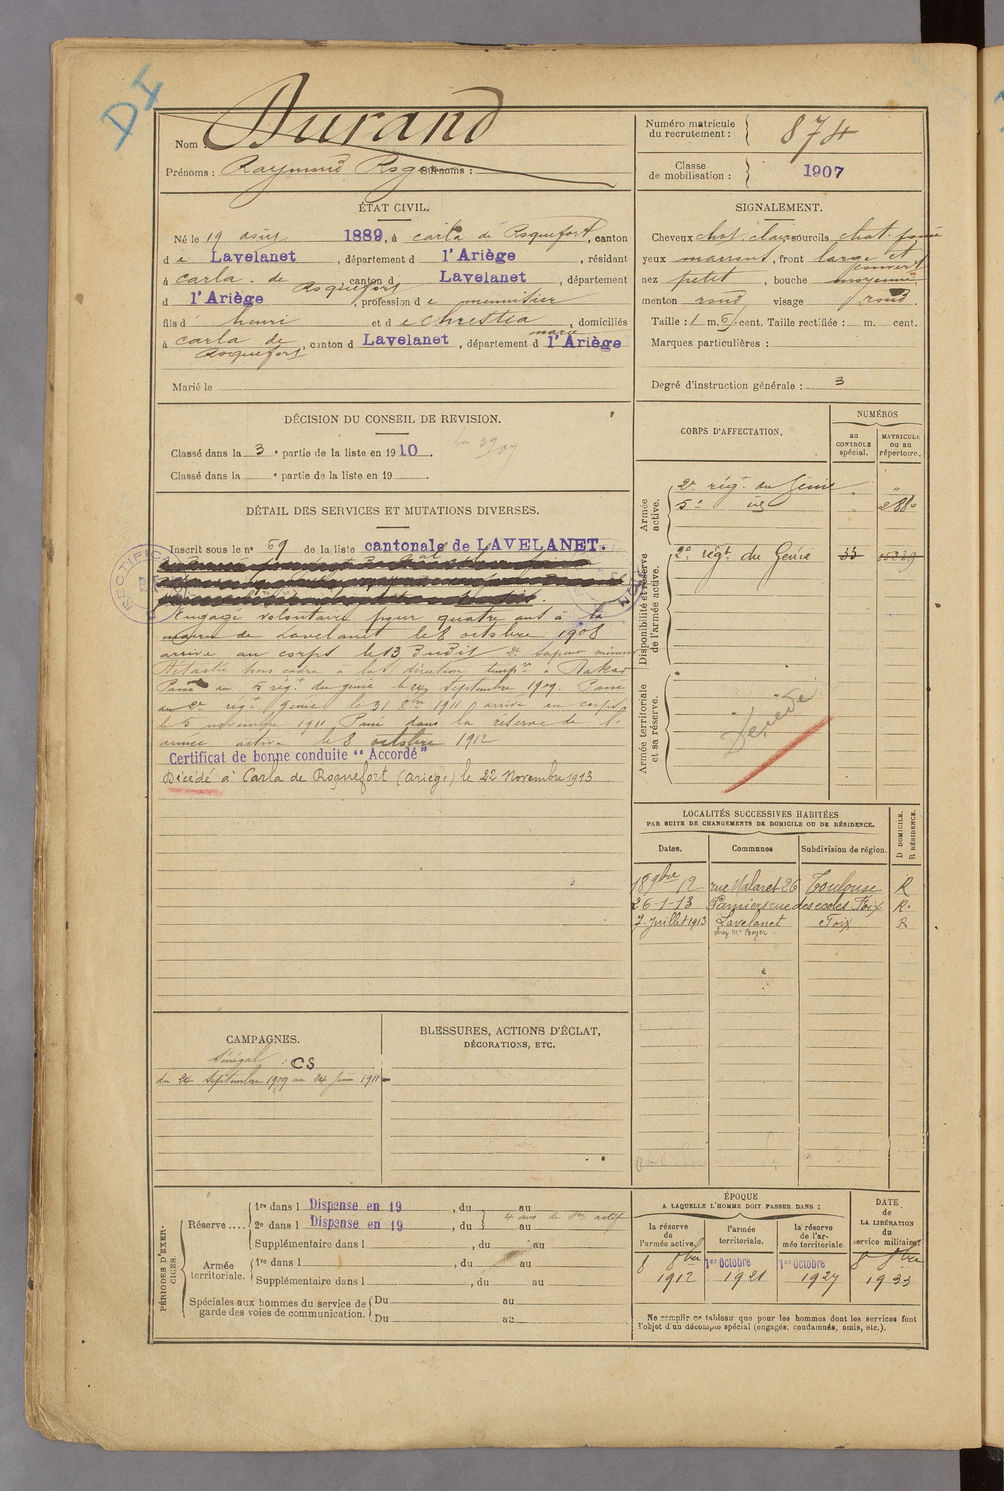 DI
Nom Durand
Prénoms : Raymond Roger Surnoms :
Numéro matricule du recrutement : 874
Classe de mobilisation : 1907
ÉTAT CIVIL.
Né le 19 août 1889, à Carla de Roquefort, canton
de Lavelanet, département d l'Ariège, résidant
à Carla de Roquefort, canton d Lavelanet, département
d l'Ariège, profession de menuisier
fils d' henri et de Chrestia marie, domiciliés
à Carla de Roquefort, canton d Lavelanet, département d l'Ariège
Marié le
SIGNALEMENT.
Cheveux chat. clair sourcils chat. foncé
yeux marrons, front large et couvert
nez petit, bouche moyenne
menton rond visage rond
Taille : 1 m. cent. Taille rectifiée : m. cent.
Marques particulières :
Degré d'instruction générale : 3
DÉCISION DU CONSEIL DE REVISION.
Classé dans la 3e partie de la liste en 1910.
Classé dans la e partie de la liste en 19 .
DÉTAIL DES SERVICES ET MUTATIONS DIVERSES.
Inscrit sous le n° 59 de la liste cantonale de LAVELANET.
Engagé volontaire pour quatre ans à la
mairie de Lavelanet le 8 octobre 1908
arrivé au corps le 13 dudit 2e sapeur mineur
Détaché hors cadre à la direction tempre à Dakar
Passé au 5 régt du génie le 24 Septembre 1909. Passé
au 2e régt Génie le 31 8bre 1911 arrivé au corps
le 5 novembre 1911 Passé dans la réserve de l'
armée active le 8 octobre 1912
Certificat de bonne conduite "Accordé"
Décédé à Carla de Roquefort (Ariège) le 22 Novembre 1913
CORPS D'AFFECTATION.
NUMÉROS
au CONTROLE spécial.
MATRICULE ou au répertoire.
Armée active.
2e régt du Génie " "
5e id " 2880
Disponibilité et réserve de l'armée active.
2e régt du Génie 33
Armée territoriale et sa réserve.
Décédé
LOCALITÉS SUCCESSIVES HABITÉES
PAR SUITE DE CHANGEMENTS DE DOMICILE OU DE RÉSIDENCE.
Dates. Communes Subdivision de région. D DOMICILE. R RÉSIDENCE.
18 9bre 12 rue Malaret 26 Toulouse R
26-1-13 Pamiers rue des écoles Foix R.
7. Juillet 1913 Lavelanet Foix R
chez Mr
CAMPAGNES.
Sénégal : CS
du 24 Septembre 1909 au 24 juin 1911
BLESSURES, ACTIONS D'ÉCLAT,
DÉCORATIONS, ETC.
PÉRIODES D'EXERCICES.
Réserve....
1re dans l Dispense en 19 , du au
2e dans l Dispense en 19 , du au
4 ans de actif
Supplémentaire dans l , du au
Armée territoriale.
1re dans l , du au
Supplémentaire dans l , du au
Spéciales aux hommes du service de garde des voies de communication.
Du au
Du au
ÉPOQUE
A LAQUELLE L'HOMME DOIT PASSER DANS :
la réserve de l'armée active.
l'armée territoriale.
la réserve de l'armée territoriale.
DATE de LA LIBÉRATION du service militaire.
8 8bre 1912
1er Octobre 1921
1er Octobre 1927
8 8bre 1933
Ne remplir ce tableau que pour les hommes dont les services font
l'objet d'un décompte spécial (engagés, condamnés, omis, etc.).